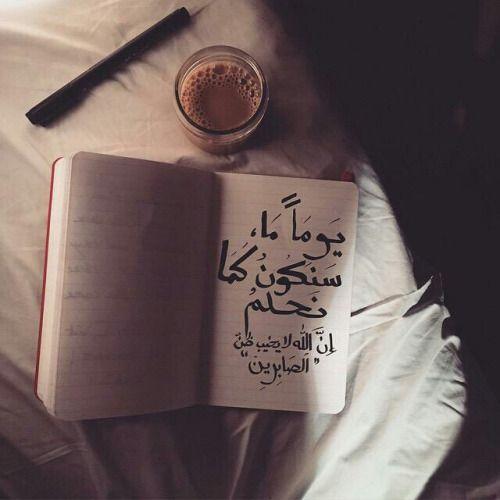 يَوماً مَا،
سَنَكُونُ كَمَا
نَحلمُ
إنَّ اللّه لا يخيب ظنّ
"الصَابِرِين"